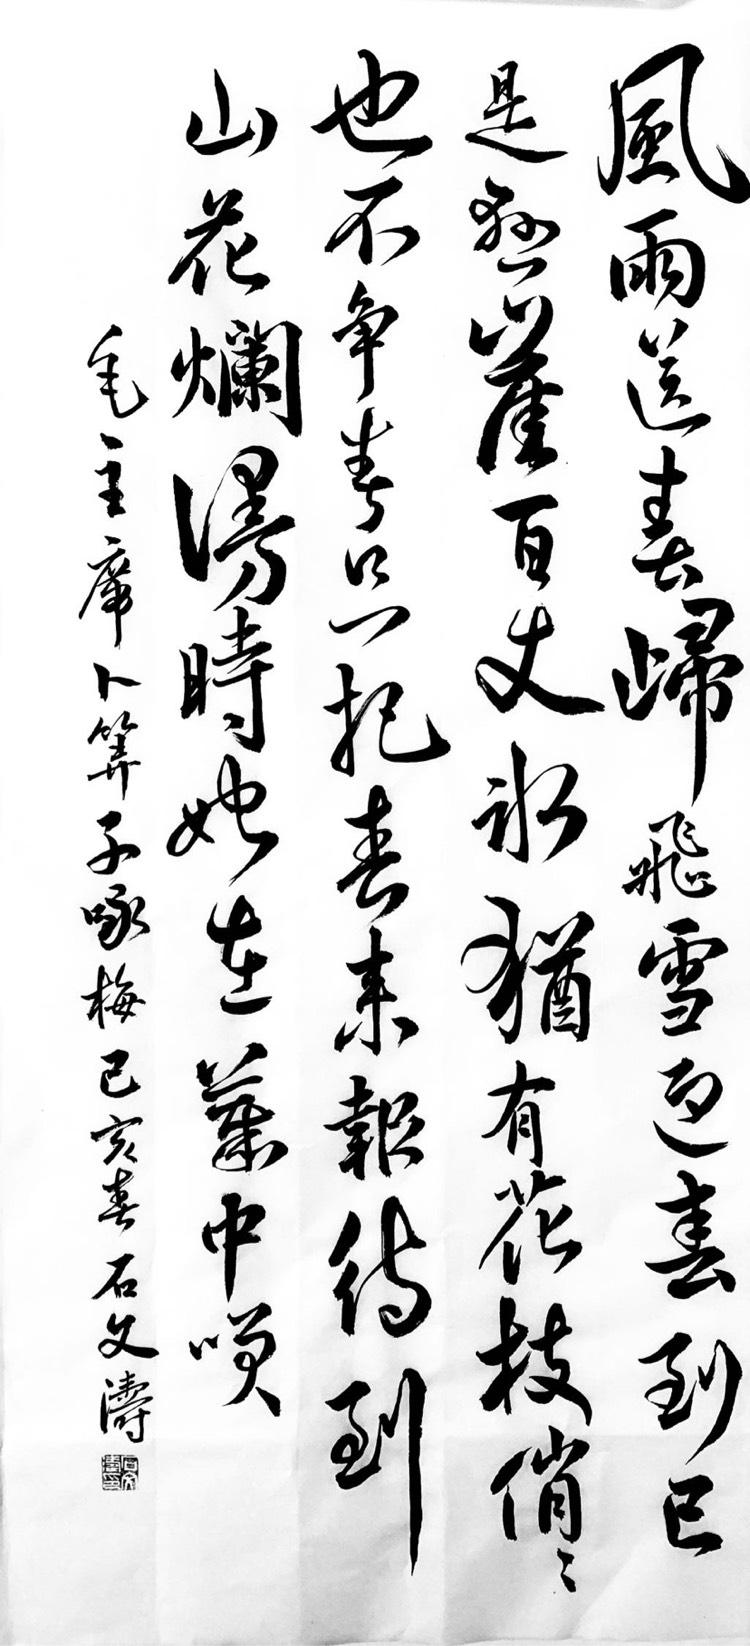 風雨送春歸飛雪迎春到已
是懸崖百丈冰猶有花枝俏〻
也不争春只把春來報待到
山花爛漫時她在叢中咲
毛主席卜算子咏梅己亥春石文濤